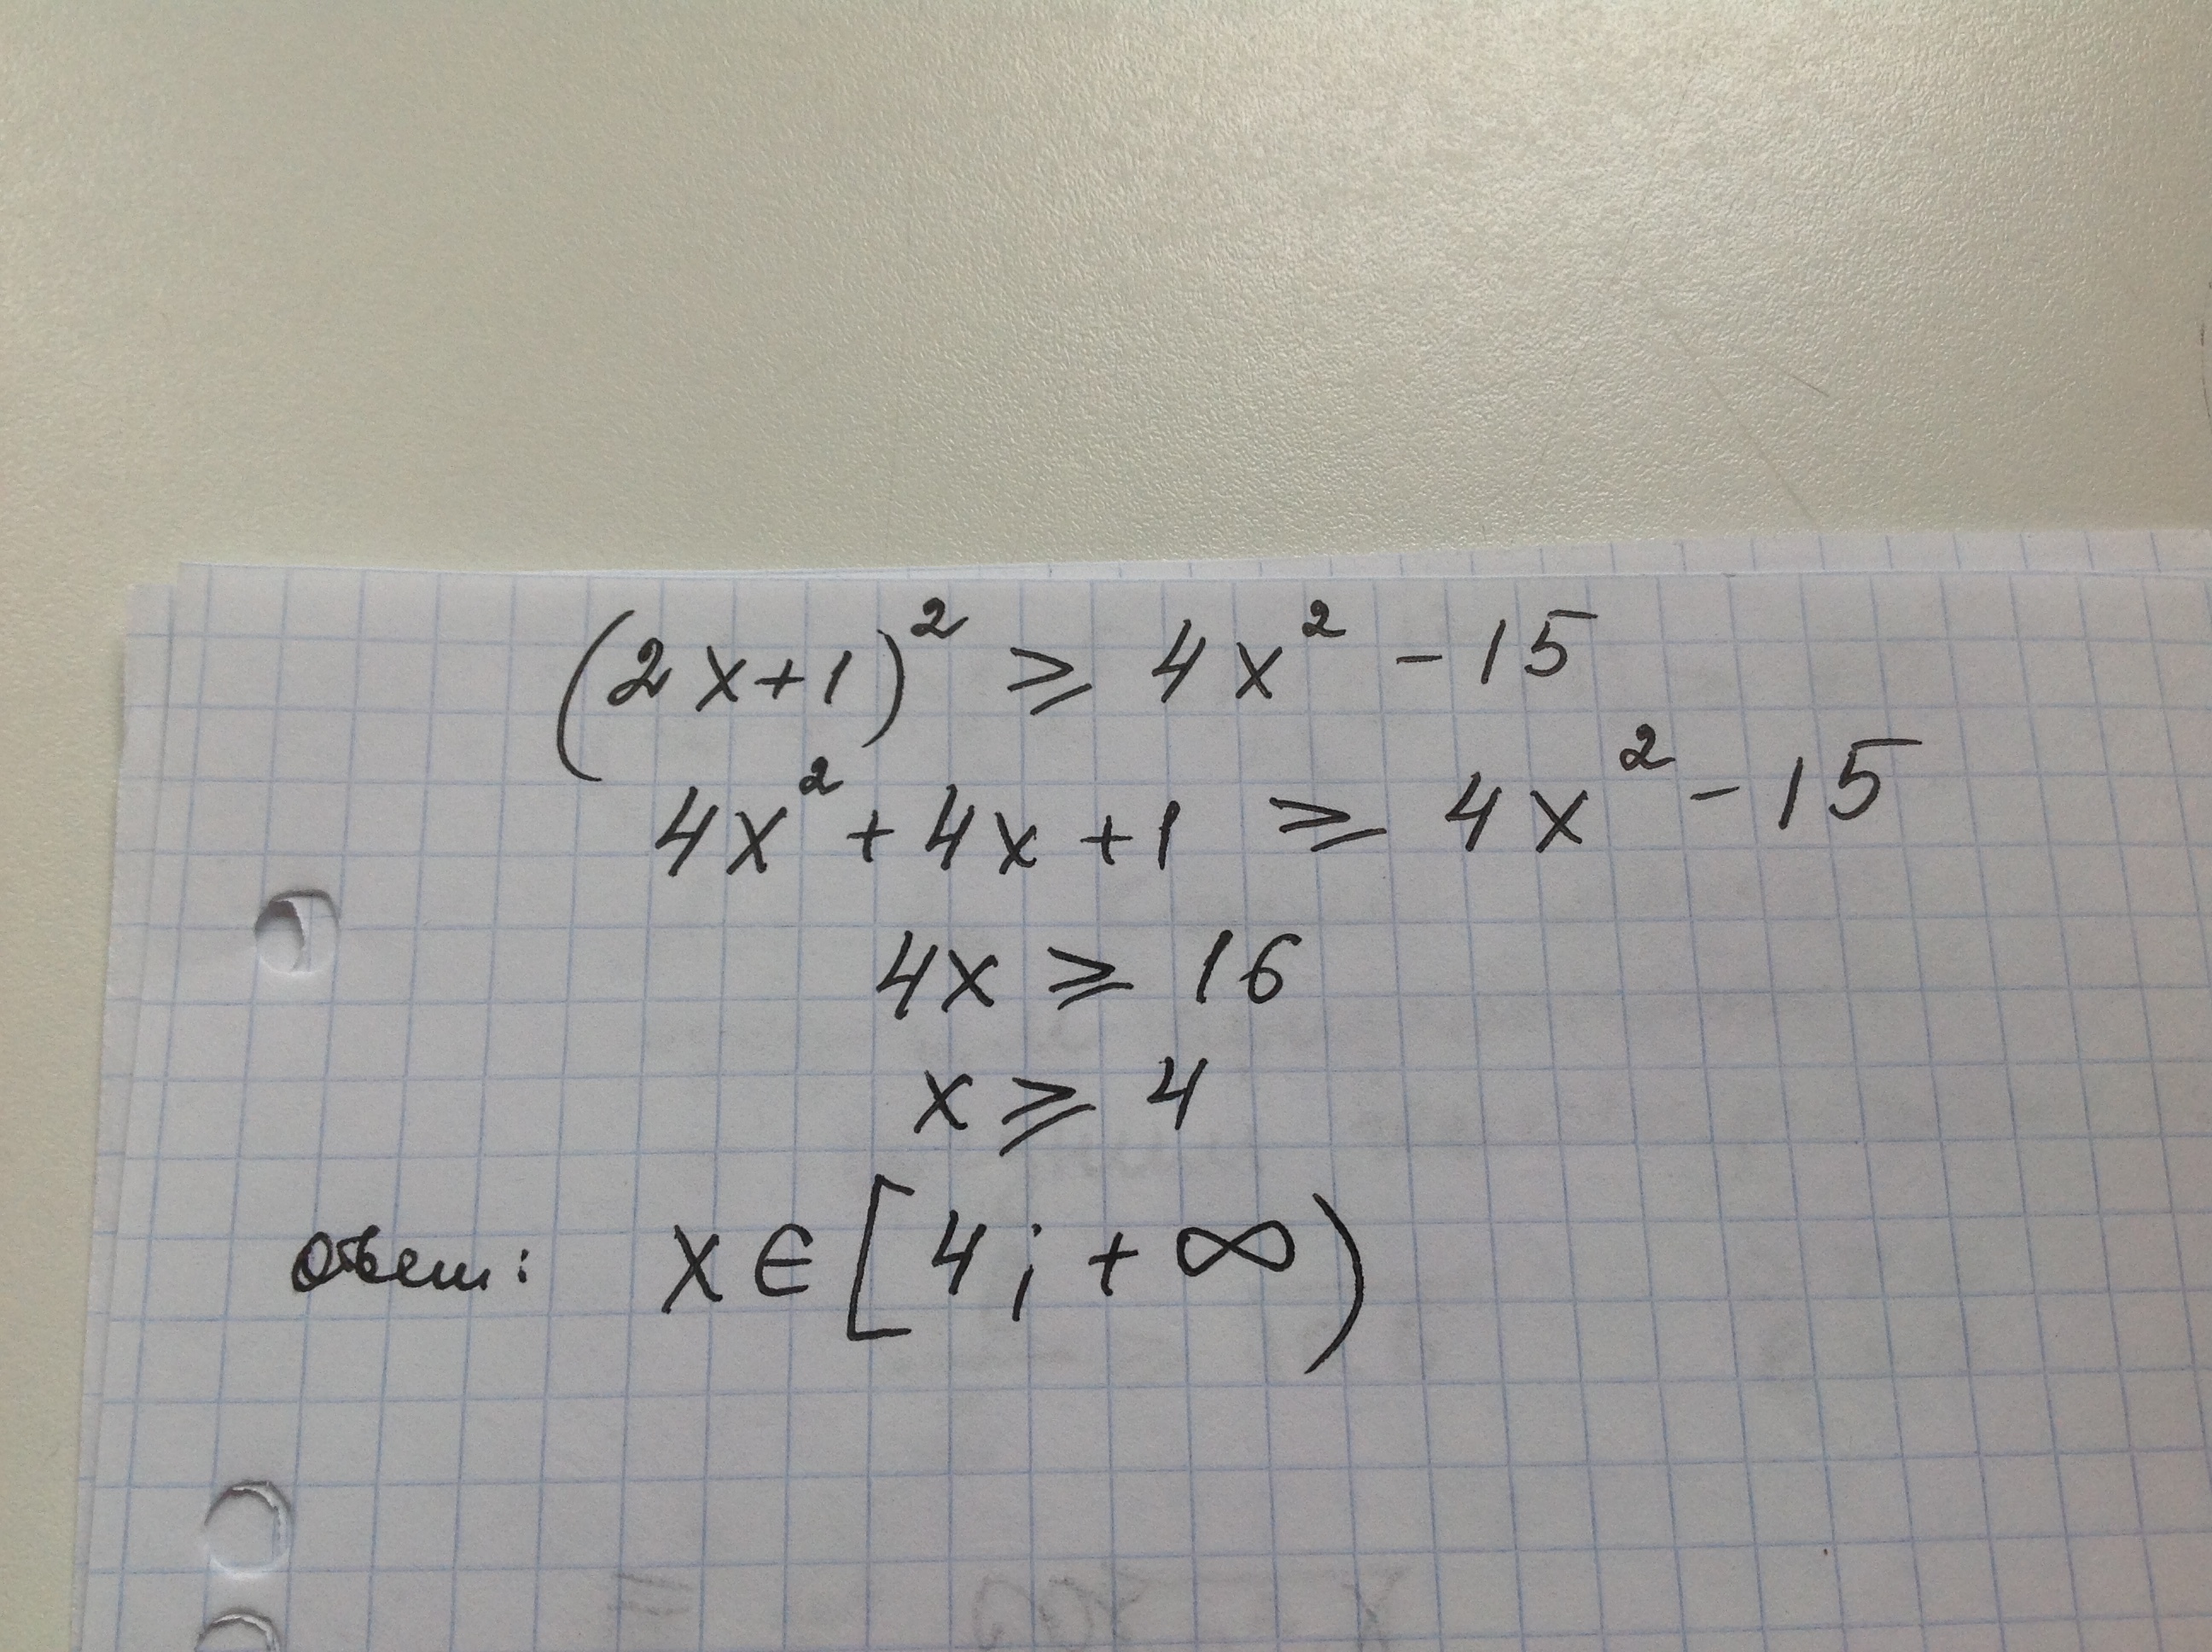 (2x+1)² ⩾ 4x² - 15
4x² + 4x + 1 ⩾ 4x² - 15
4x ⩾ 16
x ⩾ 4
Ответ: x ∈ [4; + ∞)